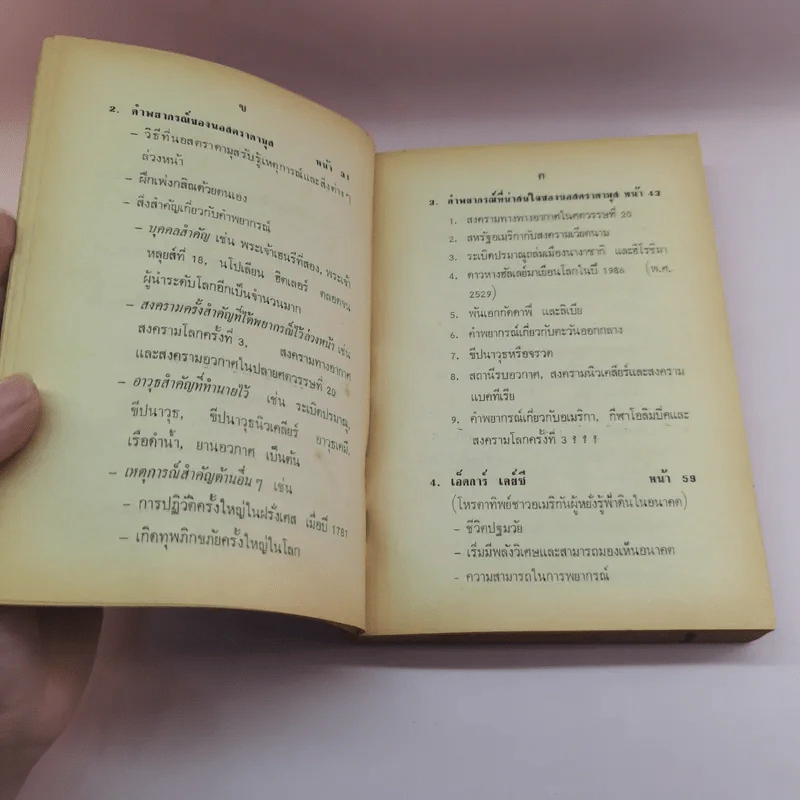 ข
2. คำพยากรณ์ของนอสตราดามุส
หน้า 31
- วิธีที่นอสตราดามุสรับรู้เหตุการณ์และสิ่งต่างๆ
ล่วงหน้า
- ฝึกเพ่งกสิณด้วยตนเอง
- สิ่งสำคัญเกี่ยวกับคำพยากรณ์
- บุคคลสำคัญ เช่น พระเจ้าเฮนรีที่สอง, พระเจ้า
หลุยส์ที่ 18, นโปเลียน ฮิตเลอร์ ตลอดจน
ผู้นำระดับโลกอีกเป็นจำนวนมาก
- สงครามครั้งสำคัญที่ได้พยากรณ์ไว้ล่วงหน้า เช่น
สงครามโลกครั้งที่ 3, สงครามทางอากาศ
และสงครามอวกาศในปลายศตวรรษที่ 20
- อาวุธสำคัญที่ทำนายไว้ เช่น ระเบิดปรมาณู,
ขีปนาวุธ, ขีปนาวุธนิวเคลียร์ อาวุธเคมี,
เรือดำน้ำ, ยานอวกาศ เป็นต้น
- เหตุการณ์สำคัญด้านอื่นๆ เช่น
- การปฏิวัติครั้งใหญ่ในฝรั่งเศส เมื่อปี 1781
- เกิดทุพภิกขภัยครั้งใหญ่ในโลก
ค
3. คำพยากรณ์ที่น่าสนใจของนอสตราดามุส หน้า 43
1. สงครามทางทางอากาศในศตวรรษที่ 20
2. สหรัฐอเมริกากับสงครามเวียดนาม
3. ระเบิดปรมาณูถล่มเมืองนางาซากิ และฮิโรชิมา
4. ดาวหางฮัลเลย์มาเยือนโลกในปี 1986 (พ.ศ.
2529)
5. พันเอกกัดดาฟี และลิเบีย
6. คำพยากรณ์เกี่ยวกับตะวันออกกลาง
7. ขีปนาวุธหรือจรวด
8. สถานีรบอวกาศ, สงครามนิวเคลียร์และสงคราม
แบคทีเรีย
9. คำพยากรณ์เกี่ยวกับอเมริกา, กีฬาโอลิมปิคและ
สงครามโลกครั้งที่ 3 ! ! !
4. เอ็ดการ์ เคย์ซี หน้า 59
(โหรตาทิพย์ชาวอเมริกันผู้หยั่งรู้ฟ้าดินในอนาคต)
- ชีวิตปฐมวัย
- เริ่มมีพลังวิเศษและสามารถมองเห็นอนาคต
- ความสามารถในการพยากรณ์